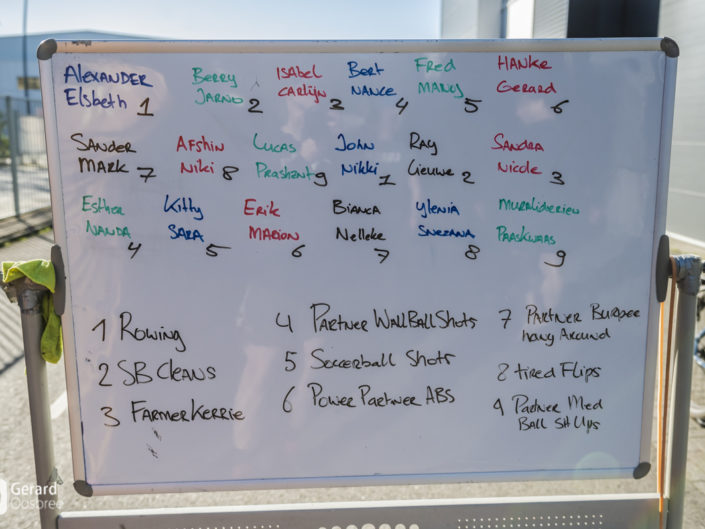 Alexander
Elsbeth 1
Berry
Jarno 2
Isabel
Carlijn 3
Bert
Nance 4
Fred
Mancy 5
Hanke
Gerard 6
Sander
Mark 7
Afshin
Niki 8
Lucas
Prashant 9
John
Nikki 1
Ray
Lieuwe 2
Sandra
Nicole 3
Esther
Nanda 4
Kitty
Sara 5
Erik
Marion 6
Bianca
Nelleke 7
Ylenia
Snezana 8
Paaskwaas 9
1 Rowing
2 SB Cleans
3 FarmerKerrie
4 Partner WallBall Shots
5 Soccerball Shots
6 Power Partner ABS
7 Partner Burpee
hang Around
8 tired Flips
9 Partner Med
Ball Sit Ups
Gerard
Oosbree